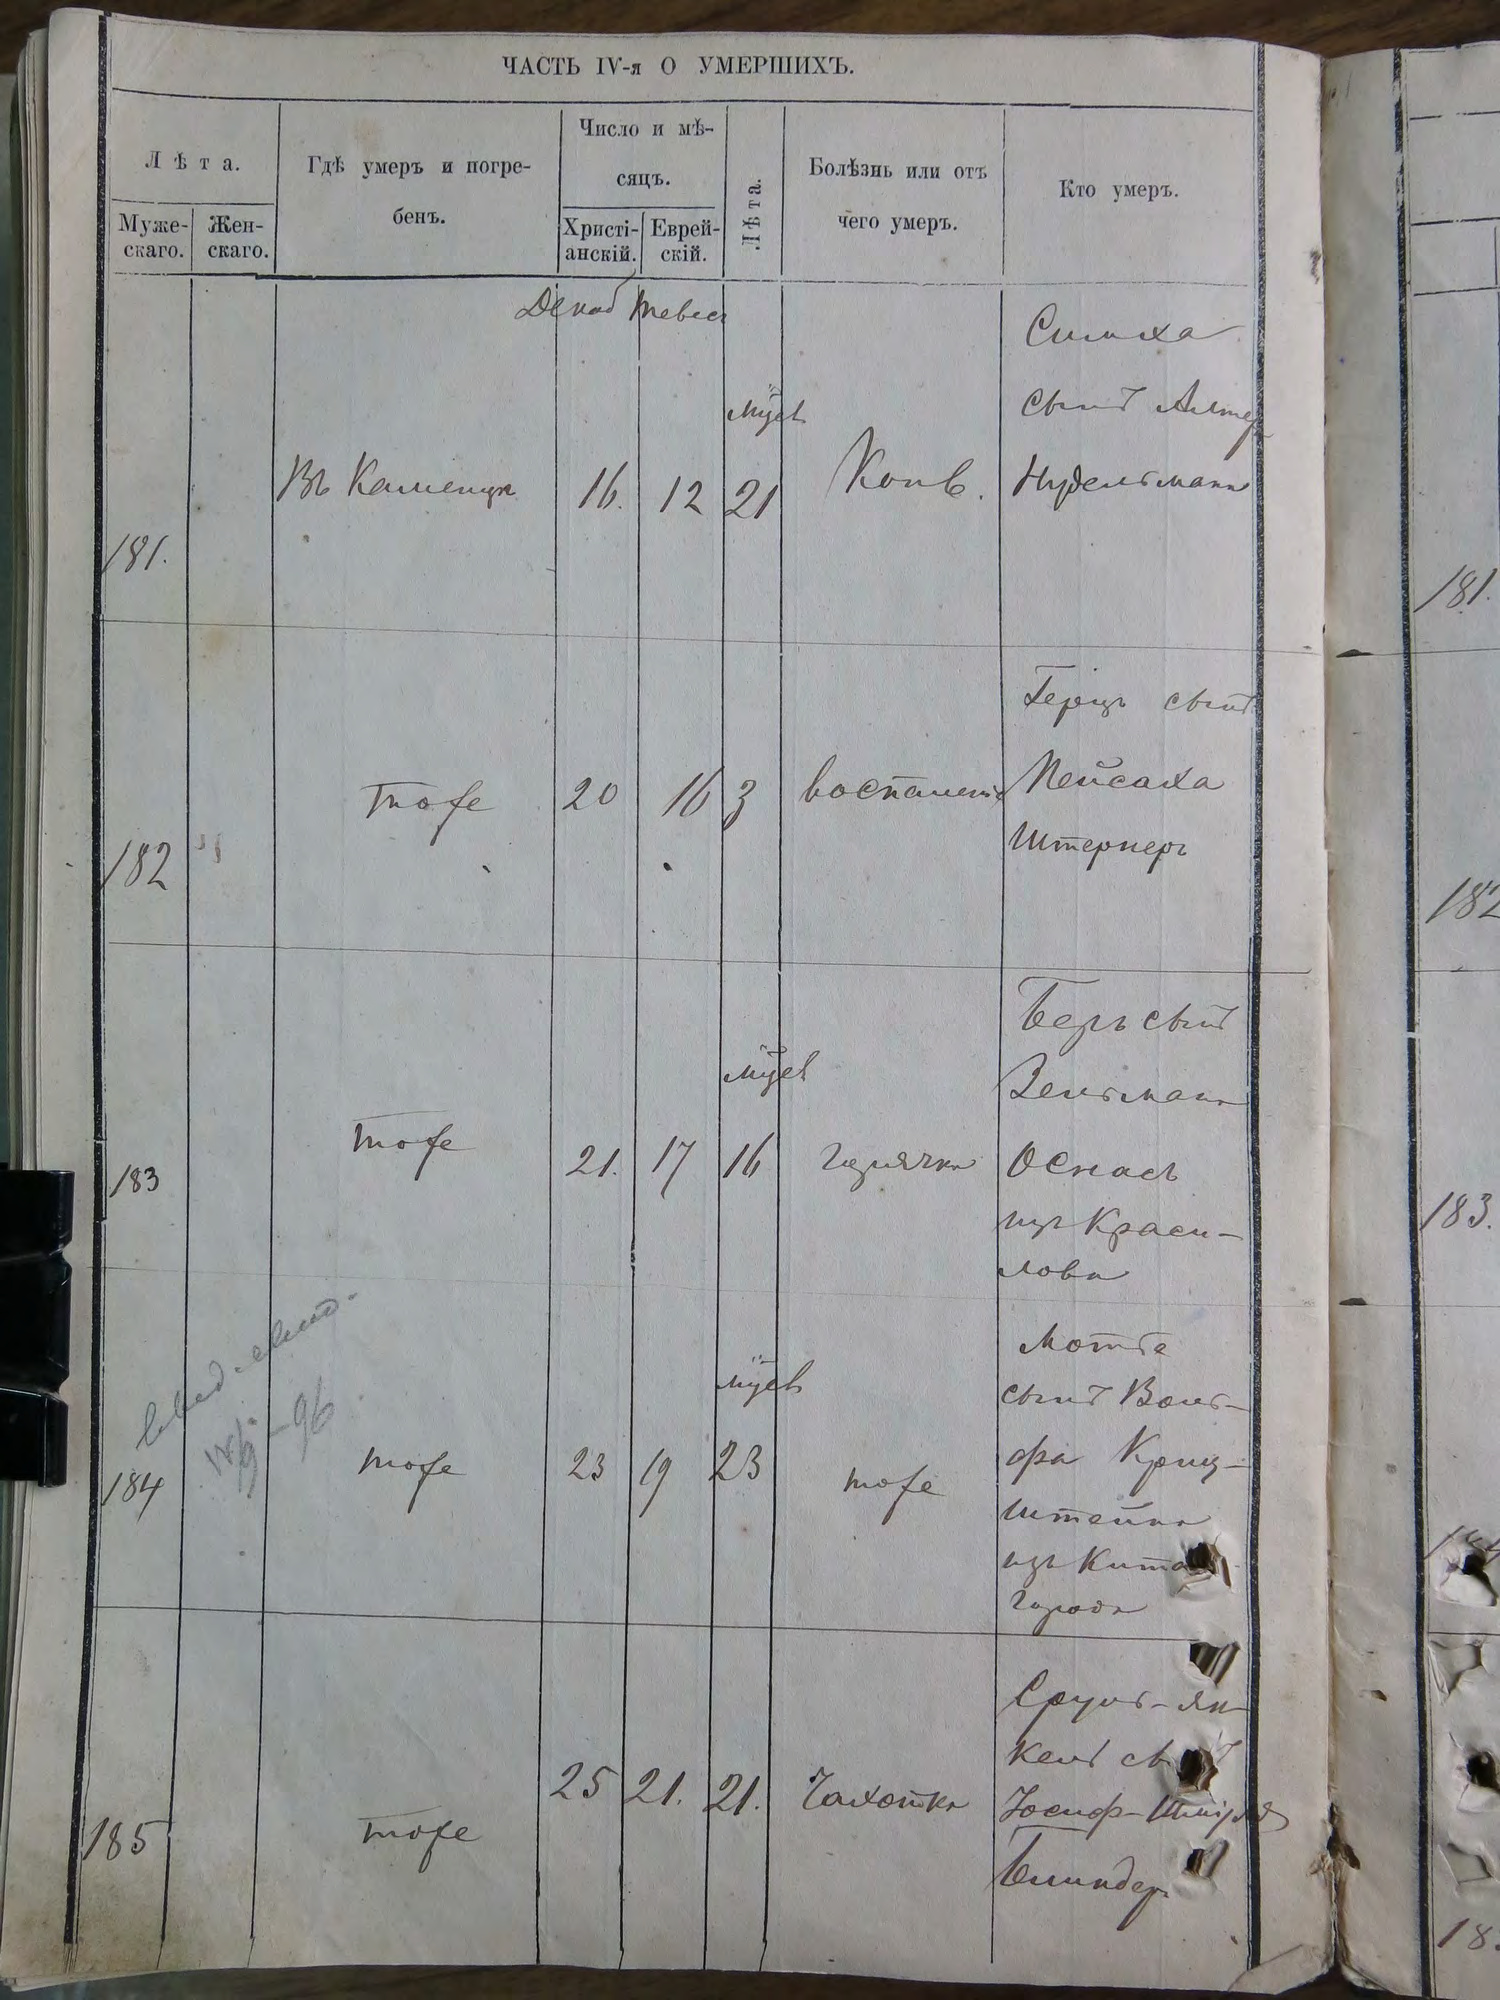 ЧАСТЬ IV-я О УМЕРШИХЪ.
Лѣта.
Муже-
скаго.
Жен-
скаго.
Гдѣ умеръ и погре-
бенъ.
Число и мѣ-
сяцъ.
Христі-
анскій.
Еврей-
скій.
Лѣта.
Болѣзнь или отъ
чего умеръ.
Кто умеръ.
Декаб
181.
Въ Каменцѣ
16.
12
21
Конв.
Симха
сынъ Алтер
Нудельмана
182
тоже
20
16
3
воспаленіе
Герцъ сынъ
Пейсаха
Штернеръ
183
тоже
21.
17
16
горячка
Беръ сынъ
Зельмана
Оснасъ
изъ Краси-
лова
184
тоже
23
19
23
тоже
Мотте
сынъ Воль-
фа Криц-
штейна
изъ Кита
города
185
тоже
25
21.
21.
Чахотка
Сруль-Ян-
кель
Іосиф-Шмірля
Блиндеръ
181.
182
183.